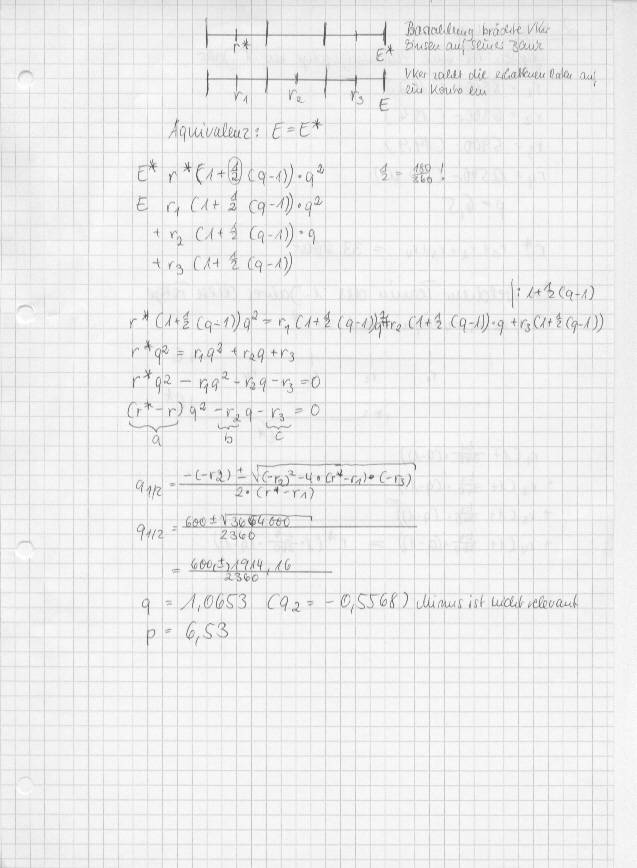 r*
E*
Barzahlung brächte Vker
Zinsen auf seines
r1 r2 r3 E
Vker zahlt die erhaltenen Raten auf
ein Konto ein
Äquivalenz: E = E*
E* r*(1+1/2 (q-1))·q²
1/2 = 180/360 !
E r1 (1+1/2 (q-1))·q²
+ r2 (1+1/2 (q-1))·q
+ r3 (1+1/2 (q-1))
|: 1+1/2 (q-1)
r*(1+1/2 (q-1))q² = r1 (1+1/2 (q-1))q²+r2 (1+1/2 (q-1))·q +r3(1+1/2 (q-1))
r*q² = r1q² + r2q + r3
r*q² - r1q² - r2q - r3 = 0
(r*-r) q² -r2 q - r3 = 0
a b c
q1/2 = -(-r2) ± √(-r2)² - 4·(r*-r1)·(-r3) / 2·(r*-r1)
q1/2 = 600 ± √3664000 / 2360
= 600 ± 1914,16 / 2360
q = 1,0653 (q2 = -0,5568) Minus ist nicht relevant
p = 6,53